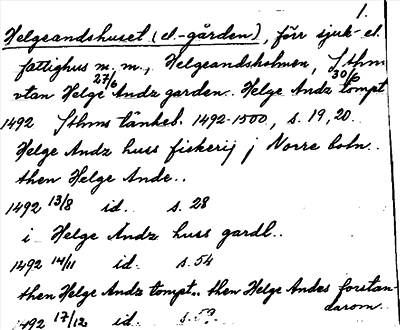 1.
Helgeandshuset (el. -gården), förr sjuk- el.
fattighus m. m., Helgeandsholmen, Sthm
27/6 30/6
vtan Helge Andz garden. Helge Andz tompt
1492 Sthms tänkeb. 1492-1500, s. 19, 20.
Helge Andz huss fiskerij j Norre botn..
then Helge Ande..
1492 13/8 id. s. 28
i Helge Andz huss gardl..
1492 14/11 id. s. 54
then Helge Andz tompt.. then Helge Andes forstan-
darom
1492 17/12 id. s. 59